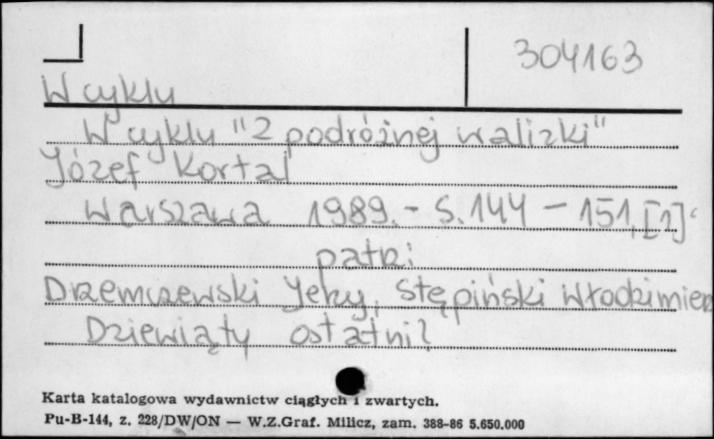 304163
W cyklu
W cyklu "Z podróżnej walizki"
Józef Kortal
Warszawa 1989.- S. 144 - 151, [1]
patrz:
Drzemczewski Jerzy, Stępiński Włodzimierz
Dziewiąty ostatni?
Karta katalogowa wydawnictw ciągłych i zwartych.
Pu-B-144, z. 228/DW/ON — W.Z.Graf. Milicz, zam. 388-86 5.650.000